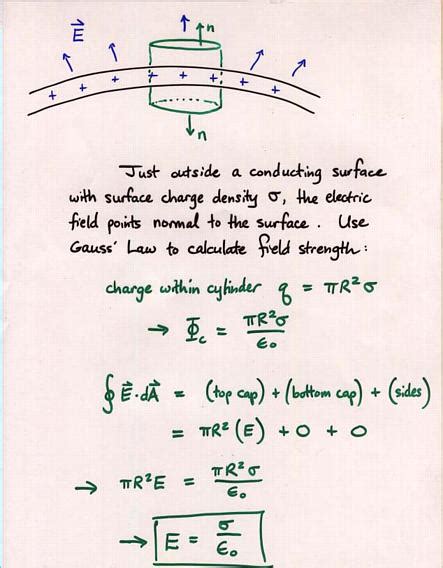 E⃗
n
+ + + + + + +
n
Just outside a conducting surface
with surface charge density σ, the electric
field points normal to the surface. Use
Gauss' Law to calculate field strength:
charge within cylinder q = πR²σ
→ Φ_c = πR²σ/ε₀
∮ E⃗·dA⃗ = (top cap) + (bottom cap) + (sides)
= πR²(E) + 0 + 0
→ πR²E = πR²σ/ε₀
→ E = σ/ε₀